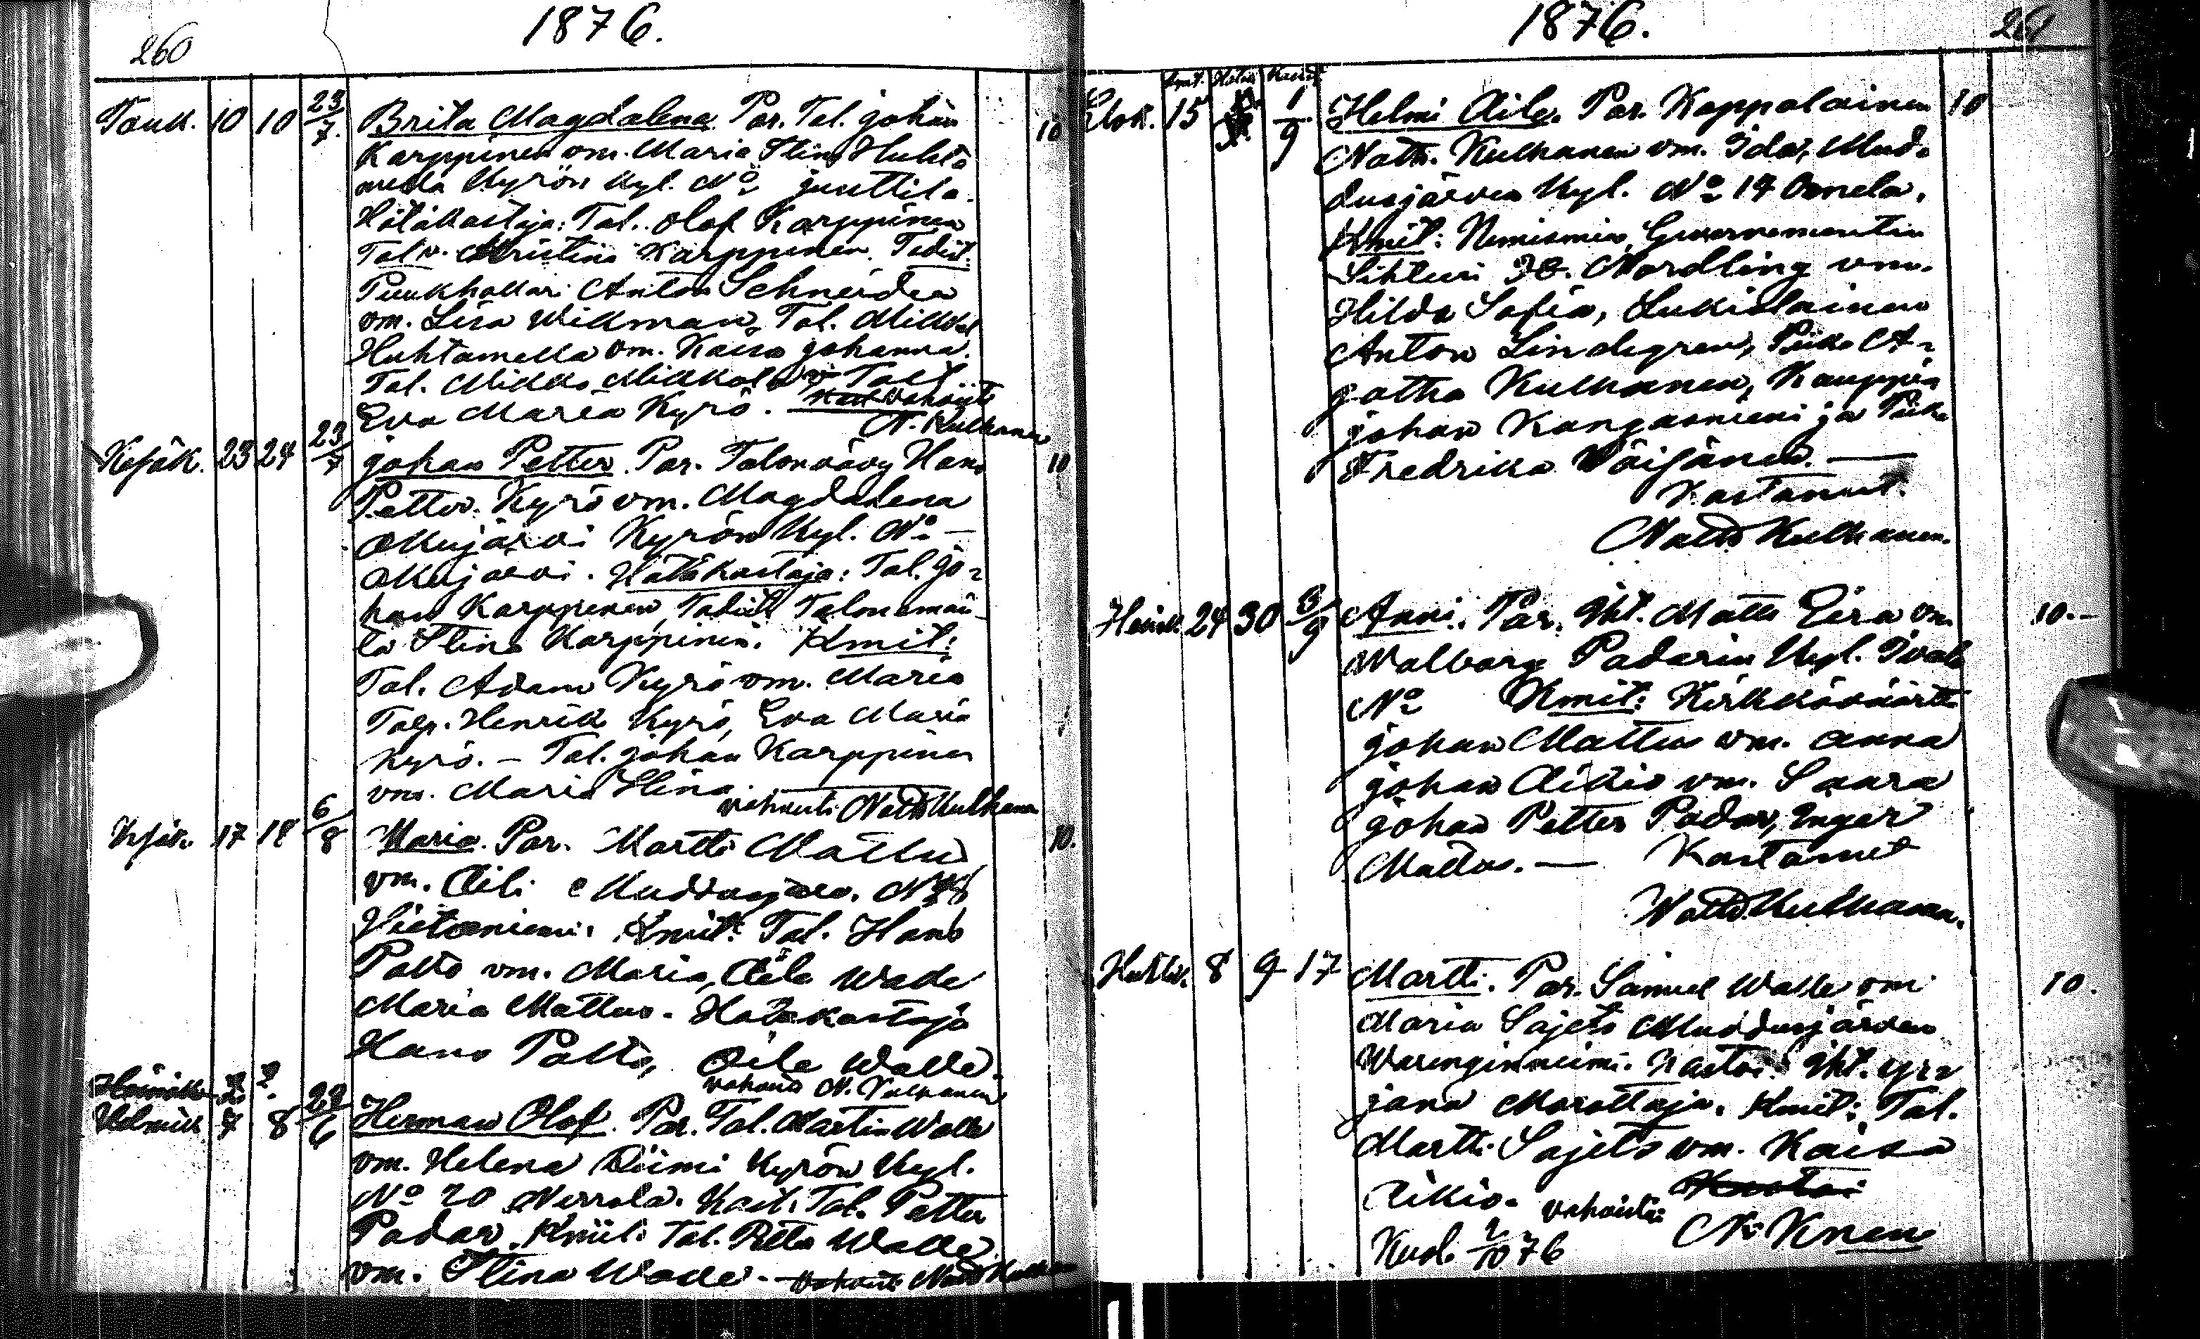 260
1876.
Touk. 10 10 23/7. Brita Magdalena. Par. Tal. Johan 10
Karppinen vm. Maria Stina Huhta
mella Kyrön Kyl. No Junttila.
Hätäkastaja: Tal. Olof Karppinen
Tal. v. Kristina Karppinen. Todist.
Puukhollari Anton Schneider
vm. Lisa Wikman, Tal. Mikkel
Huhtamella vm. Kaisa Johanna.
Tal. Mikko Mikkola
Eva Maria Kyrö. vahvisti
N. Kulhanen
Kesäk. 23 24 23/7 Johan Petter. Par. Talonvävy Hans 10
Petter Kyrö vm. Magdalena
Mujärvi Kyrön Kyl. No –
Akujärvi. Hätäkastaja: Tal. Jo-
han Karppinen, Todist. Talonemän-
tä Stina Karppinen. Kmit:
Tal. Adam Kyrö vm. Maria
Talp. Henrik Kyrö, Eva Maria
Kyrö. – Tal. Johan Karppinen
vm. Maria Stina.
vahvisti Natth Kulhanen
Kesäk. 17 18 6/8 Maria. Par. Martti Mattus 10.
vm. Aili Muddusjärv. No 8
Hietaniemi. Kmit: Tal. Hans
Palto vm. Maria, Aila Walle
Maria Mattus. Hätäkastaja
Hans Palto, Aile Walle.
vahvist. N. Kulhanen
Heinäk. 2 2.
Helmik. 7 8 22/6 Herman Olof. Par. Tal. Martin Walle
vm. Helena Kiimi Kyrön Kyl.
No 20 Nerrola. Kast. Tal. Petter
Padar. Kmit: Tal. Petter Walle
vm. Stina Walle. – vahvist. Natth Kulhanen
1876.
261
Elok. 15 1/9 Helmi Aile. Par. Kappalainen 10
Natth. Kulhanen vm. Ida, Mud-
dusjärven Kyl. No 14 Onnela.
Kmit: Nimismies, Guvernementin
Sihteri Nordling vm.
Hilda Sofia, Lukiolainen
Anton Lindegren, Piika A-
gatha Kulhanen, Kauppias
Johan Kangasniemi ja Piika
Fredrika Väijänen. —
Kastanut.
Natth Kulhanen.
Heinäk. 24 30 3/9 Anni. Par. Iht. Matts Eira vm. 10.-
Walborg Padarin Kyl. Ivalo
No Kmit: Kirkkoväärtti
Johan Mattus vm. Anna
Johan Aikio vm. Saara
Johan Petter Padar, Inger
Mattus. — Kastanut
Natth Kulhanen.
Huhtik. 8 9 17 Martti. Par. Samuel Walle vm. 10.
Maria Sajets Muddusjärven
Waringinniemi. Kastoi: Iht. Yr-
jänä Morottaja. Kmit: Tal.
Martti Sajets vm. Kaisa
Aikio. Kastoi
vahvisti:
N. Knen
Kuol. 2/10 76